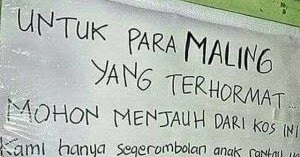 UNTUK PARA MALING
YANG TERHORMAT...
MOHON MENJAUH DARI KOS INI
Kami hanya segerombolan anak rantau